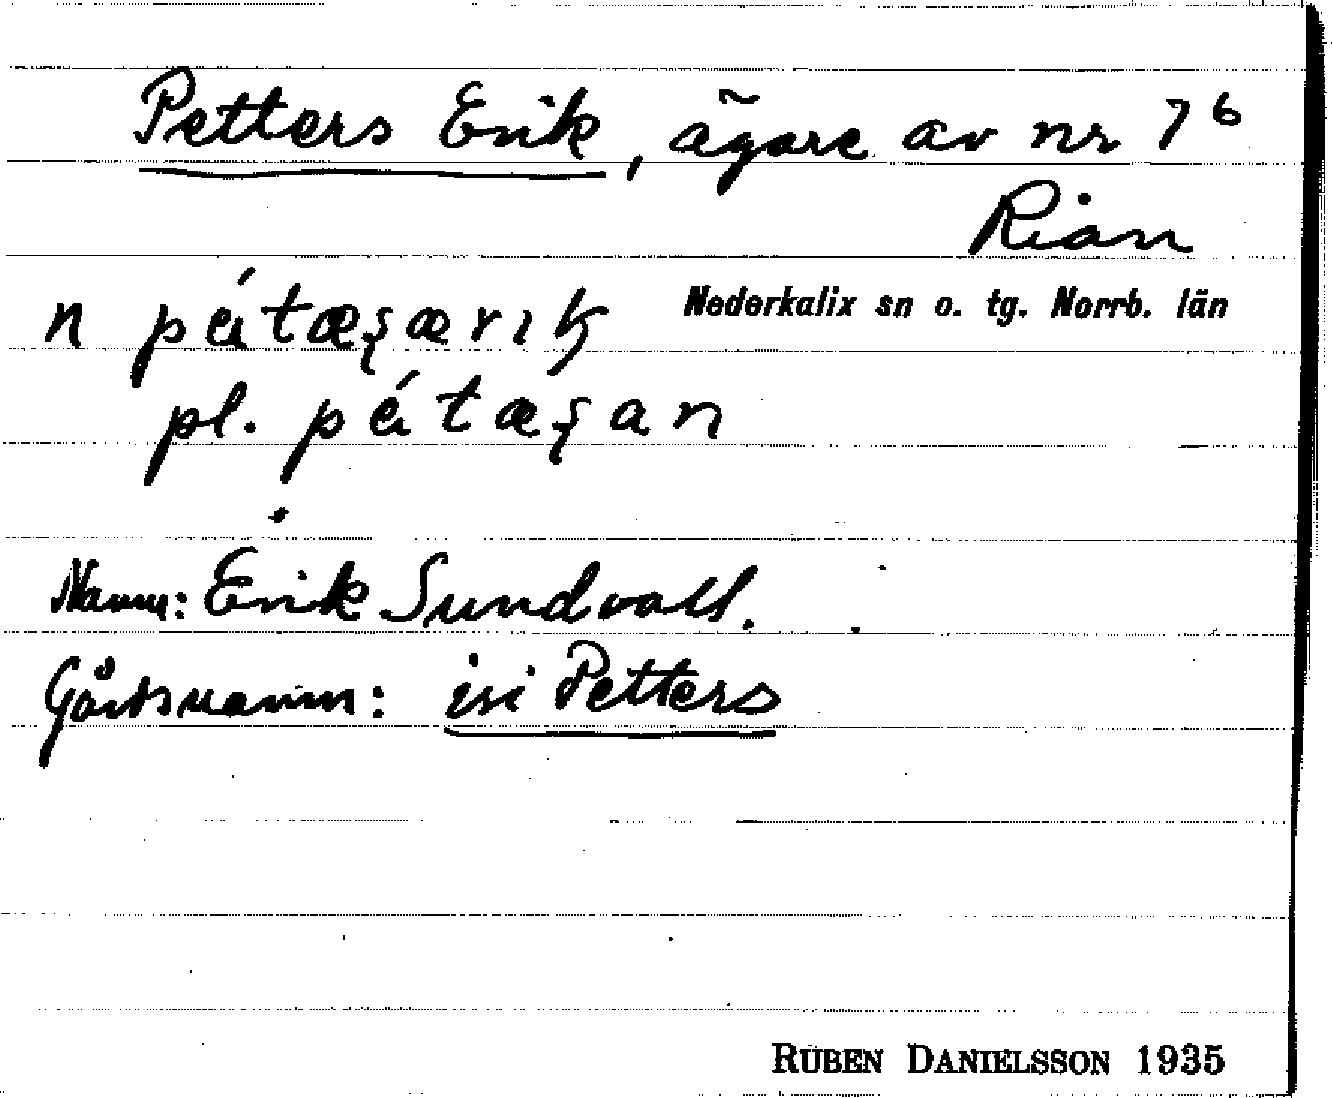 Petters Erik, ägare av nr 7⁶
Rian
n péɩtæʂærık
Nederkalix sn o. tg. Norrb. län
pl. péɩtæʂan
Namn: Erik Sundvall.
Gårdsnamn: isi Petters
RUBEN DANIELSSON 1935